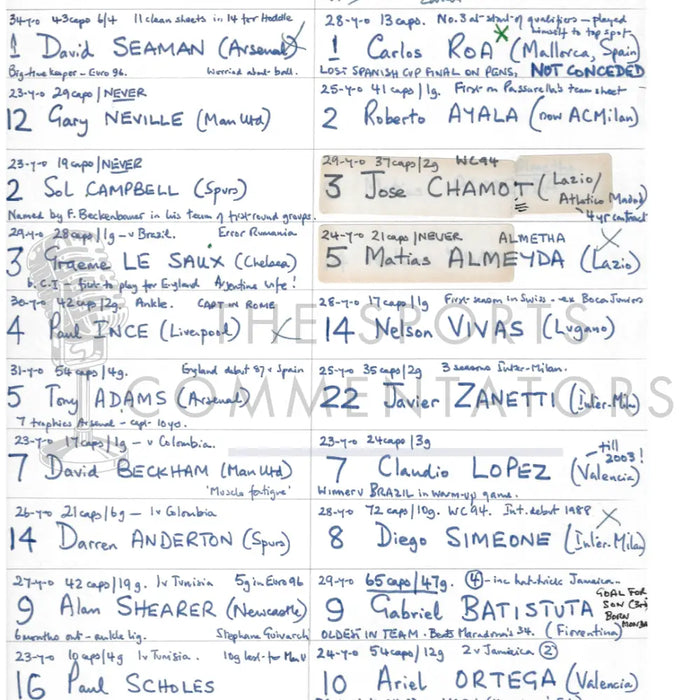 34-y-o 43caps 6/4 11 clean sheets in 14 for Hoddle
1 David SEAMAN (Arsenal)
Big-time keeper - Euro 96. Worried about ball.
23-y-o 29caps/NEVER
12 Gary NEVILLE (Man Utd)
23-y-o 19caps/NEVER
2 Sol CAMPBELL (Spurs)
Named by F. Beckenbauer in his team of first round groups.
29-y-o 28caps/1g - v Brazil. Error Rumania
3 Graeme LE SAUX (Chelsea)
b. C.I - first to play for England Argentine wife!
30-y-o 42caps/2g Ankle. CAPT IN ROME
4 Paul INCE (Liverpool)
31-y-o 54caps/4g. England debut 87 v Spain
5 Tony ADAMS (Arsenal)
7 trophies Arsenal - capt 10yo.
23-y-o 17caps/1g - v Colombia.
7 David BECKHAM (Man Utd)
'Muscle fatigue'
26-y-o 21caps/6g - 1v Colombia
14 Darren ANDERTON (Spurs)
27-y-o 42caps/19g. 1v Tunisia 5g in Euro 96
9 Alan SHEARER (Newcastle)
6 months out - ankle lig. Stephane Guivarch
23-y-o 10caps/4g 1v Tunisia. 10g last - for Man U
16 Paul SCHOLES
28-y-o 13caps. No.3 at start of qualifiers - played
himself to top spot
1 Carlos ROA (Mallorca, Spain)
LOST SPANISH CUP FINAL ON PENS, NOT CONCEDED
25-y-o 41caps/1g. First on Passarella's team sheet
2 Roberto AYALA (now AC Milan)
29-y-o 37caps/2g WC94
3 Jose CHAMOT (Lazio/
Atlético Madrid)
4yr contract
24-y-o 21caps/NEVER ALMETHA
5 Matias ALMEYDA (Lazio)
28-y-o 17caps/1g First season in Swiss - ex Boca Juniors
14 Nelson VIVAS (Lugano)
25-y-o 35caps/2g 3 seasons Inter-Milan.
22 Javier ZANETTI (Inter-Milan)
23-y-o 24caps/3g
till 2003!
7 Claudio LOPEZ (Valencia)
Winner v BRAZIL in warm-up game.
28-y-o 72caps/10g. WC94. Int. debut 1988
8 Diego SIMEONE (Inter-Milan)
29-y-o 65caps/47g. 4 - inc hat-trick Jamaica -
GOAL FOR
SON
BORN
9 Gabriel BATISTUTA
OLDEST IN TEAM - Beats Maradona's 34. (Fiorentina)
24-y-o 54caps/12g 2v Jamaica 2
10 Ariel ORTEGA (Valencia)
THE SPORTS
COMMENTATORS